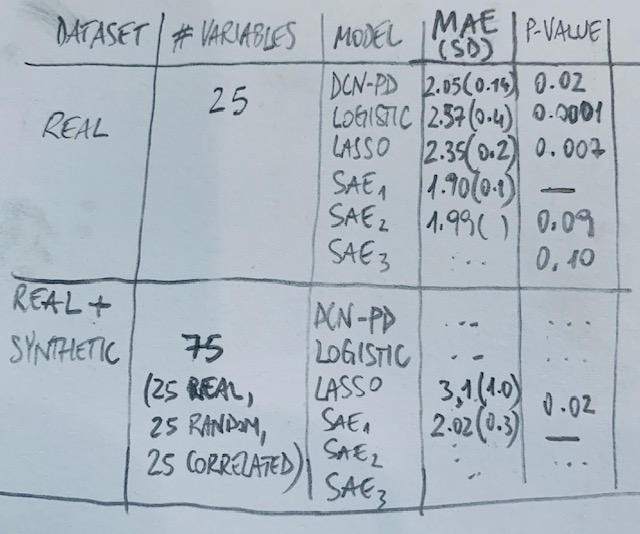 DATASET # VARIABLES MODEL MAE (SD) P-VALUE
REAL 25
DCN-PD 2.05(0.14) 0.02
LOGISTIC 2.57(0.4) 0.0001
LASSO 2.35(0.2) 0.007
SAE1 1.90(0.1) —
SAE2 1.99( ) 0.09
SAE3 ... 0.10
REAL + SYNTHETIC
75
(25 REAL,
25 RANDOM,
25 CORRELATED)
DCN-PD ... ...
LOGISTIC ... ...
LASSO 3,1(1.0) 0.02
SAE1 2.02(0.3) —
SAE2 ... ...
SAE3